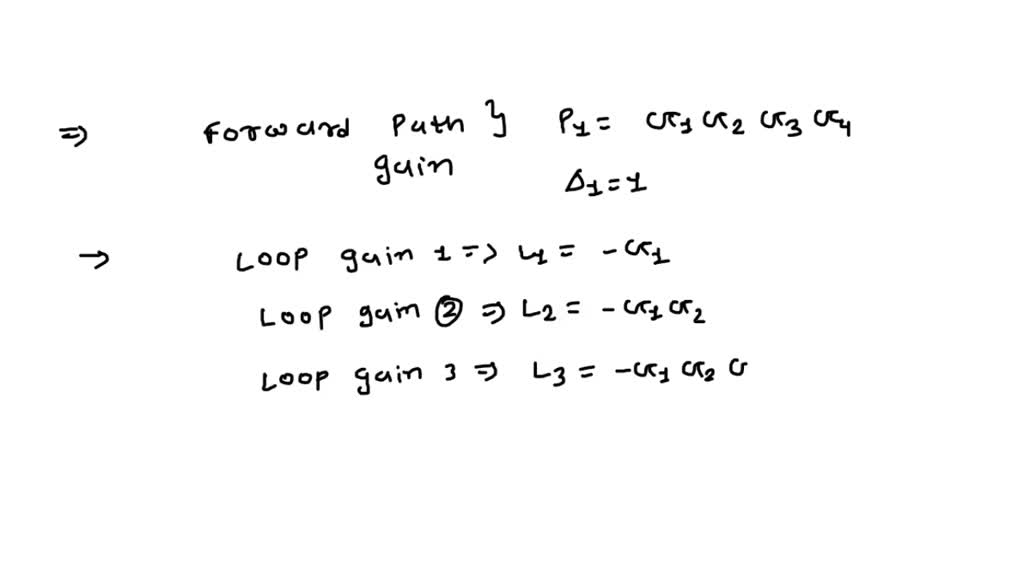 ⇒ Forward Path } P1 = G1 G2 G3 G4
gain
Δ1 = 1
→ Loop gain 1 ⇒ L1 = -G1
Loop gain ② ⇒ L2 = -G1 G2
Loop gain 3 ⇒ L3 = -G1 G2 G